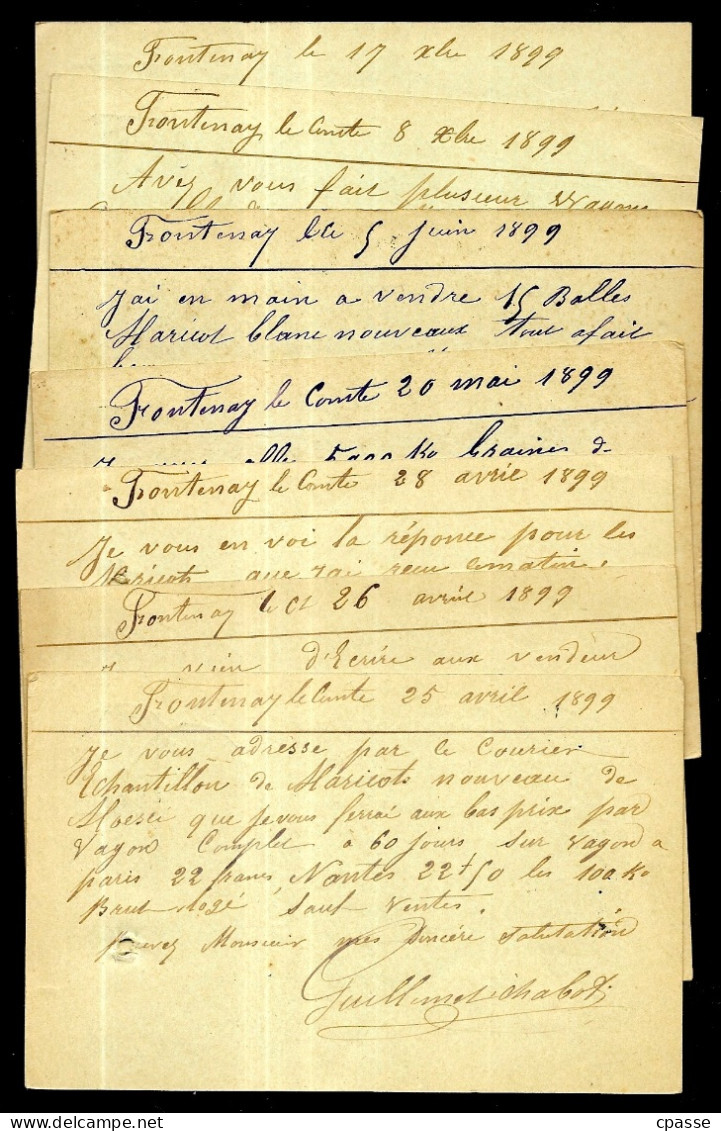 Fontenay le 17 xbre 1899
Fontenay le Comte 8 xbre 1899
Avez vous fait plusieur Wagons
Fontenay le 5 Juin 1899
J'ai en main a vendre 15 Balles
Haricot blanc nouveaux tout afait
Fontenay le Comte 20 mai 1899
5000 Ko Graines de
Fontenay le Comte 28 avril 1899
Je vous en voi la réponce pour les
Haricots que J'ai recu cematin.
Fontenay le Ct 26 avril 1899
Je vien d'Ecrire aux vendeur
Fontenay le Comte 25 avril 1899
Je vous adresse par ce Courier
Echantillon de Haricots nouveau de
que Je vous ferrai aux bas prix par
Vagon Complet a 60 Jours sur Vagon a
paris 22 francs, Nantes 22f50 les 100 Ko
Brut logé, sauf ventes.
Recevez Monsieur mes sincére Salutation
Guillemet Chabot
cpasse